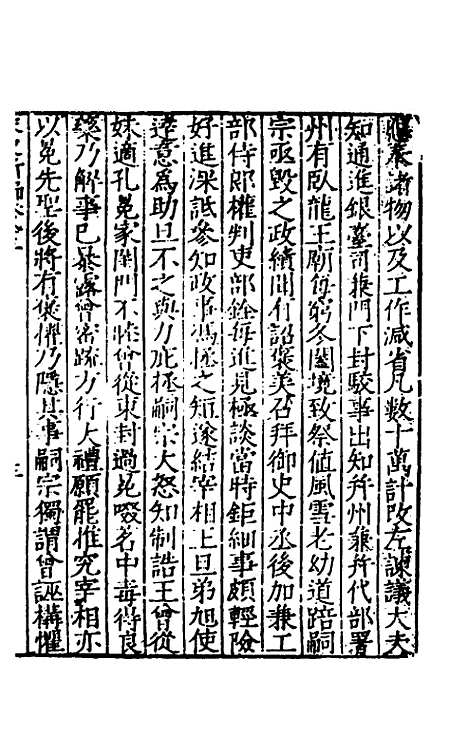 應奉諸物以及工作減省凡數十萬計改左諫議大夫
知通進銀臺司兼門下封駮事出知并州兼并代部署
州有臥龍王廟每窮冬闔境致祭值風雪老幼道踣嗣
宗亟毀之政績聞有詔褒美召拜御史中丞後加兼工
部侍郎權判吏部銓每進見極談當時鉅細事頗輕險
好進深詆參知政事馮拯之短遂結宰相王旦弟旭使
達意為助旦不之與乃庇拯嗣宗大怒知制誥王曾從
妹適孔冕家閨門不睦曾從東封過冕啜茗中毒得良
藥乃解事已暴露曾密疏方行大禮願罷推究宰相亦
以冕先聖後將有褒擢乃隱其事嗣宗獨謂曾誣構懼